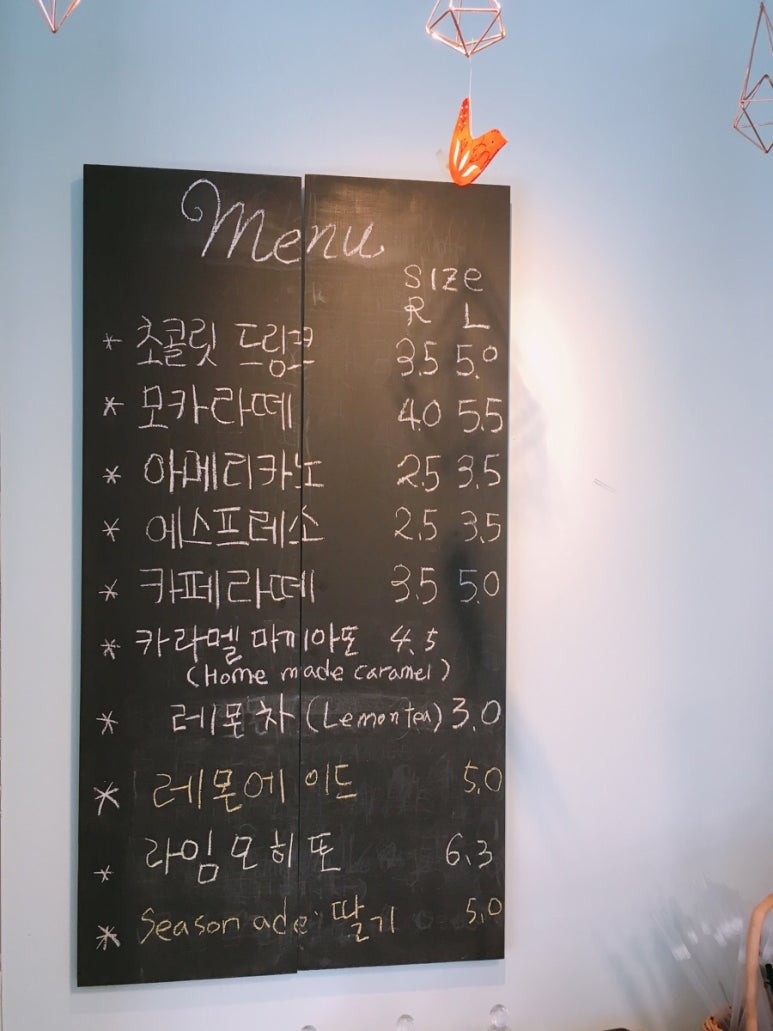 Menu
SIZE
R L
* 초콜릿 드링크 3.5 5.0
* 모카라떼 4.0 5.5
* 아메리카노 2.5 3.5
* 에스프레소 2.5 3.5
* 카페라떼 3.5 5.0
* 카라멜 마끼아또 4.5
(Home made caramel)
* 레몬차 (Lemon tea) 3.0
* 레몬에이드 5.0
* 라임모히또 6.3
* Season ade 딸기 5.0